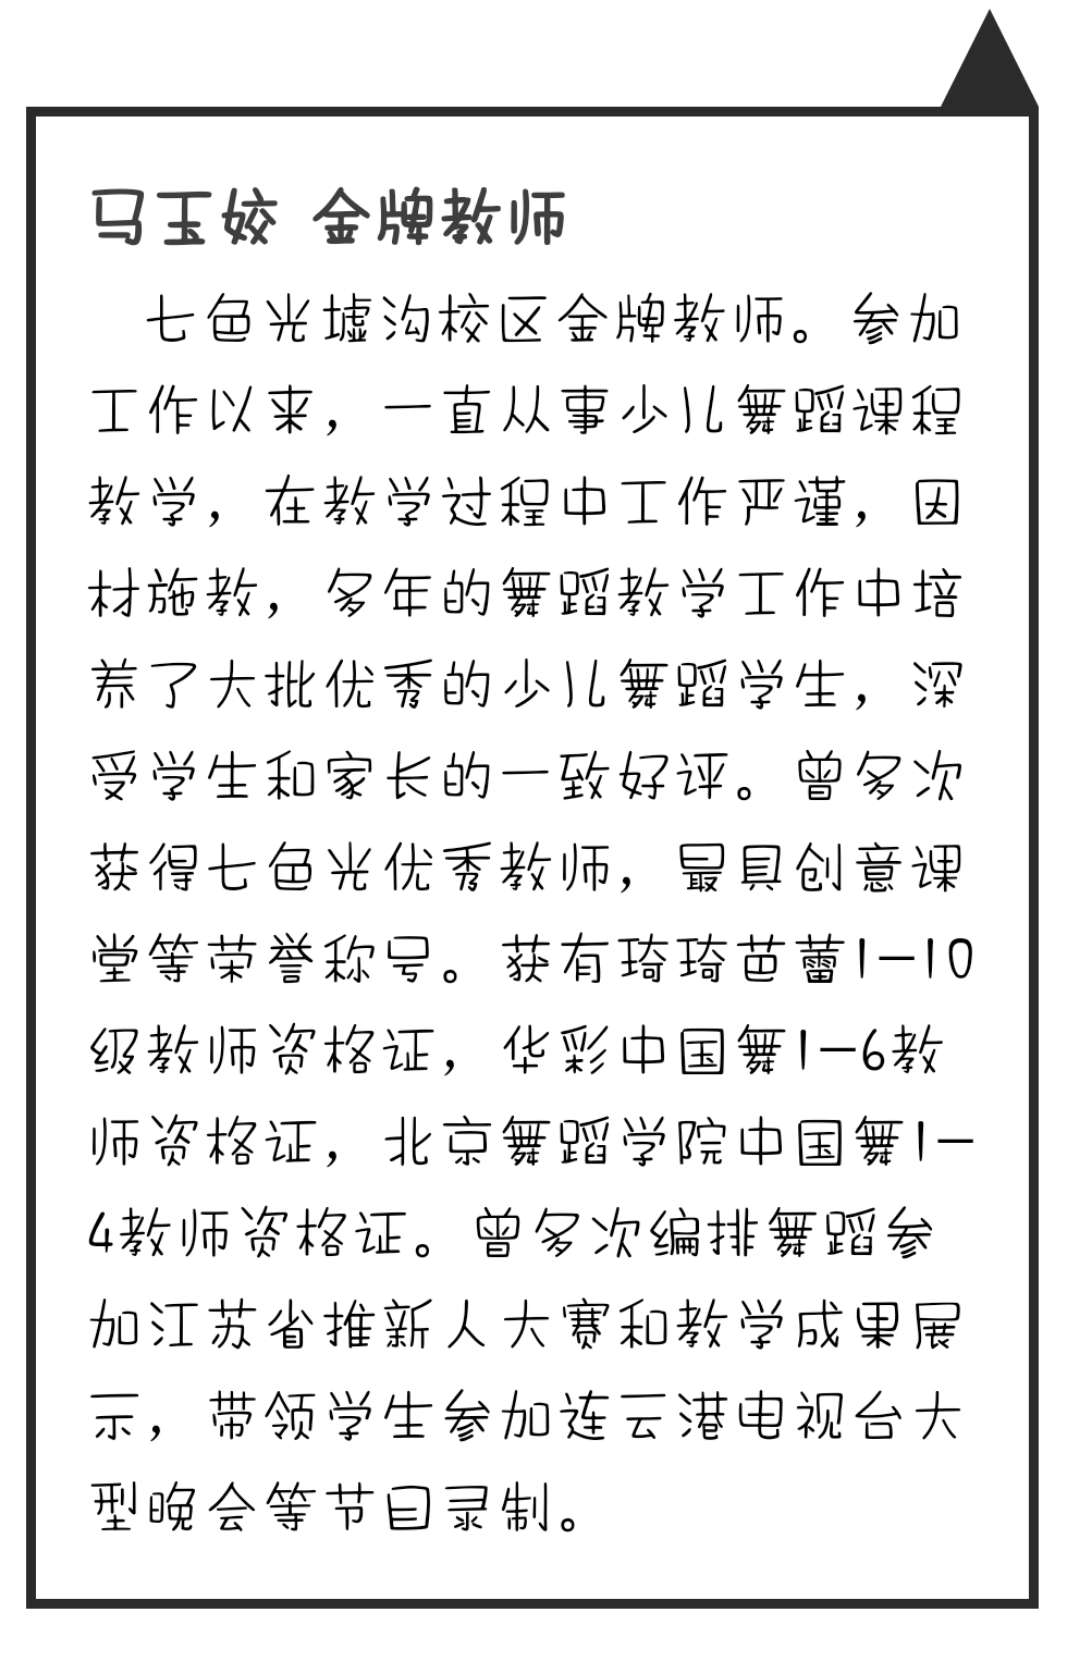 马玉姣 金牌教师
七色光墟沟校区金牌教师。参加
工作以来，一直从事少儿舞蹈课程
教学，在教学过程中工作严谨，因
材施教，多年的舞蹈教学工作中培
养了大批优秀的少儿舞蹈学生，深
受学生和家长的一致好评。曾多次
获得七色光优秀教师，最具创意课
堂等荣誉称号。获有琦琦芭蕾1-10
级教师资格证，华彩中国舞1-6教
师资格证，北京舞蹈学院中国舞1-
4教师资格证。曾多次编排舞蹈参
加江苏省推新人大赛和教学成果展
示，带领学生参加连云港电视台大
型晚会等节目录制。